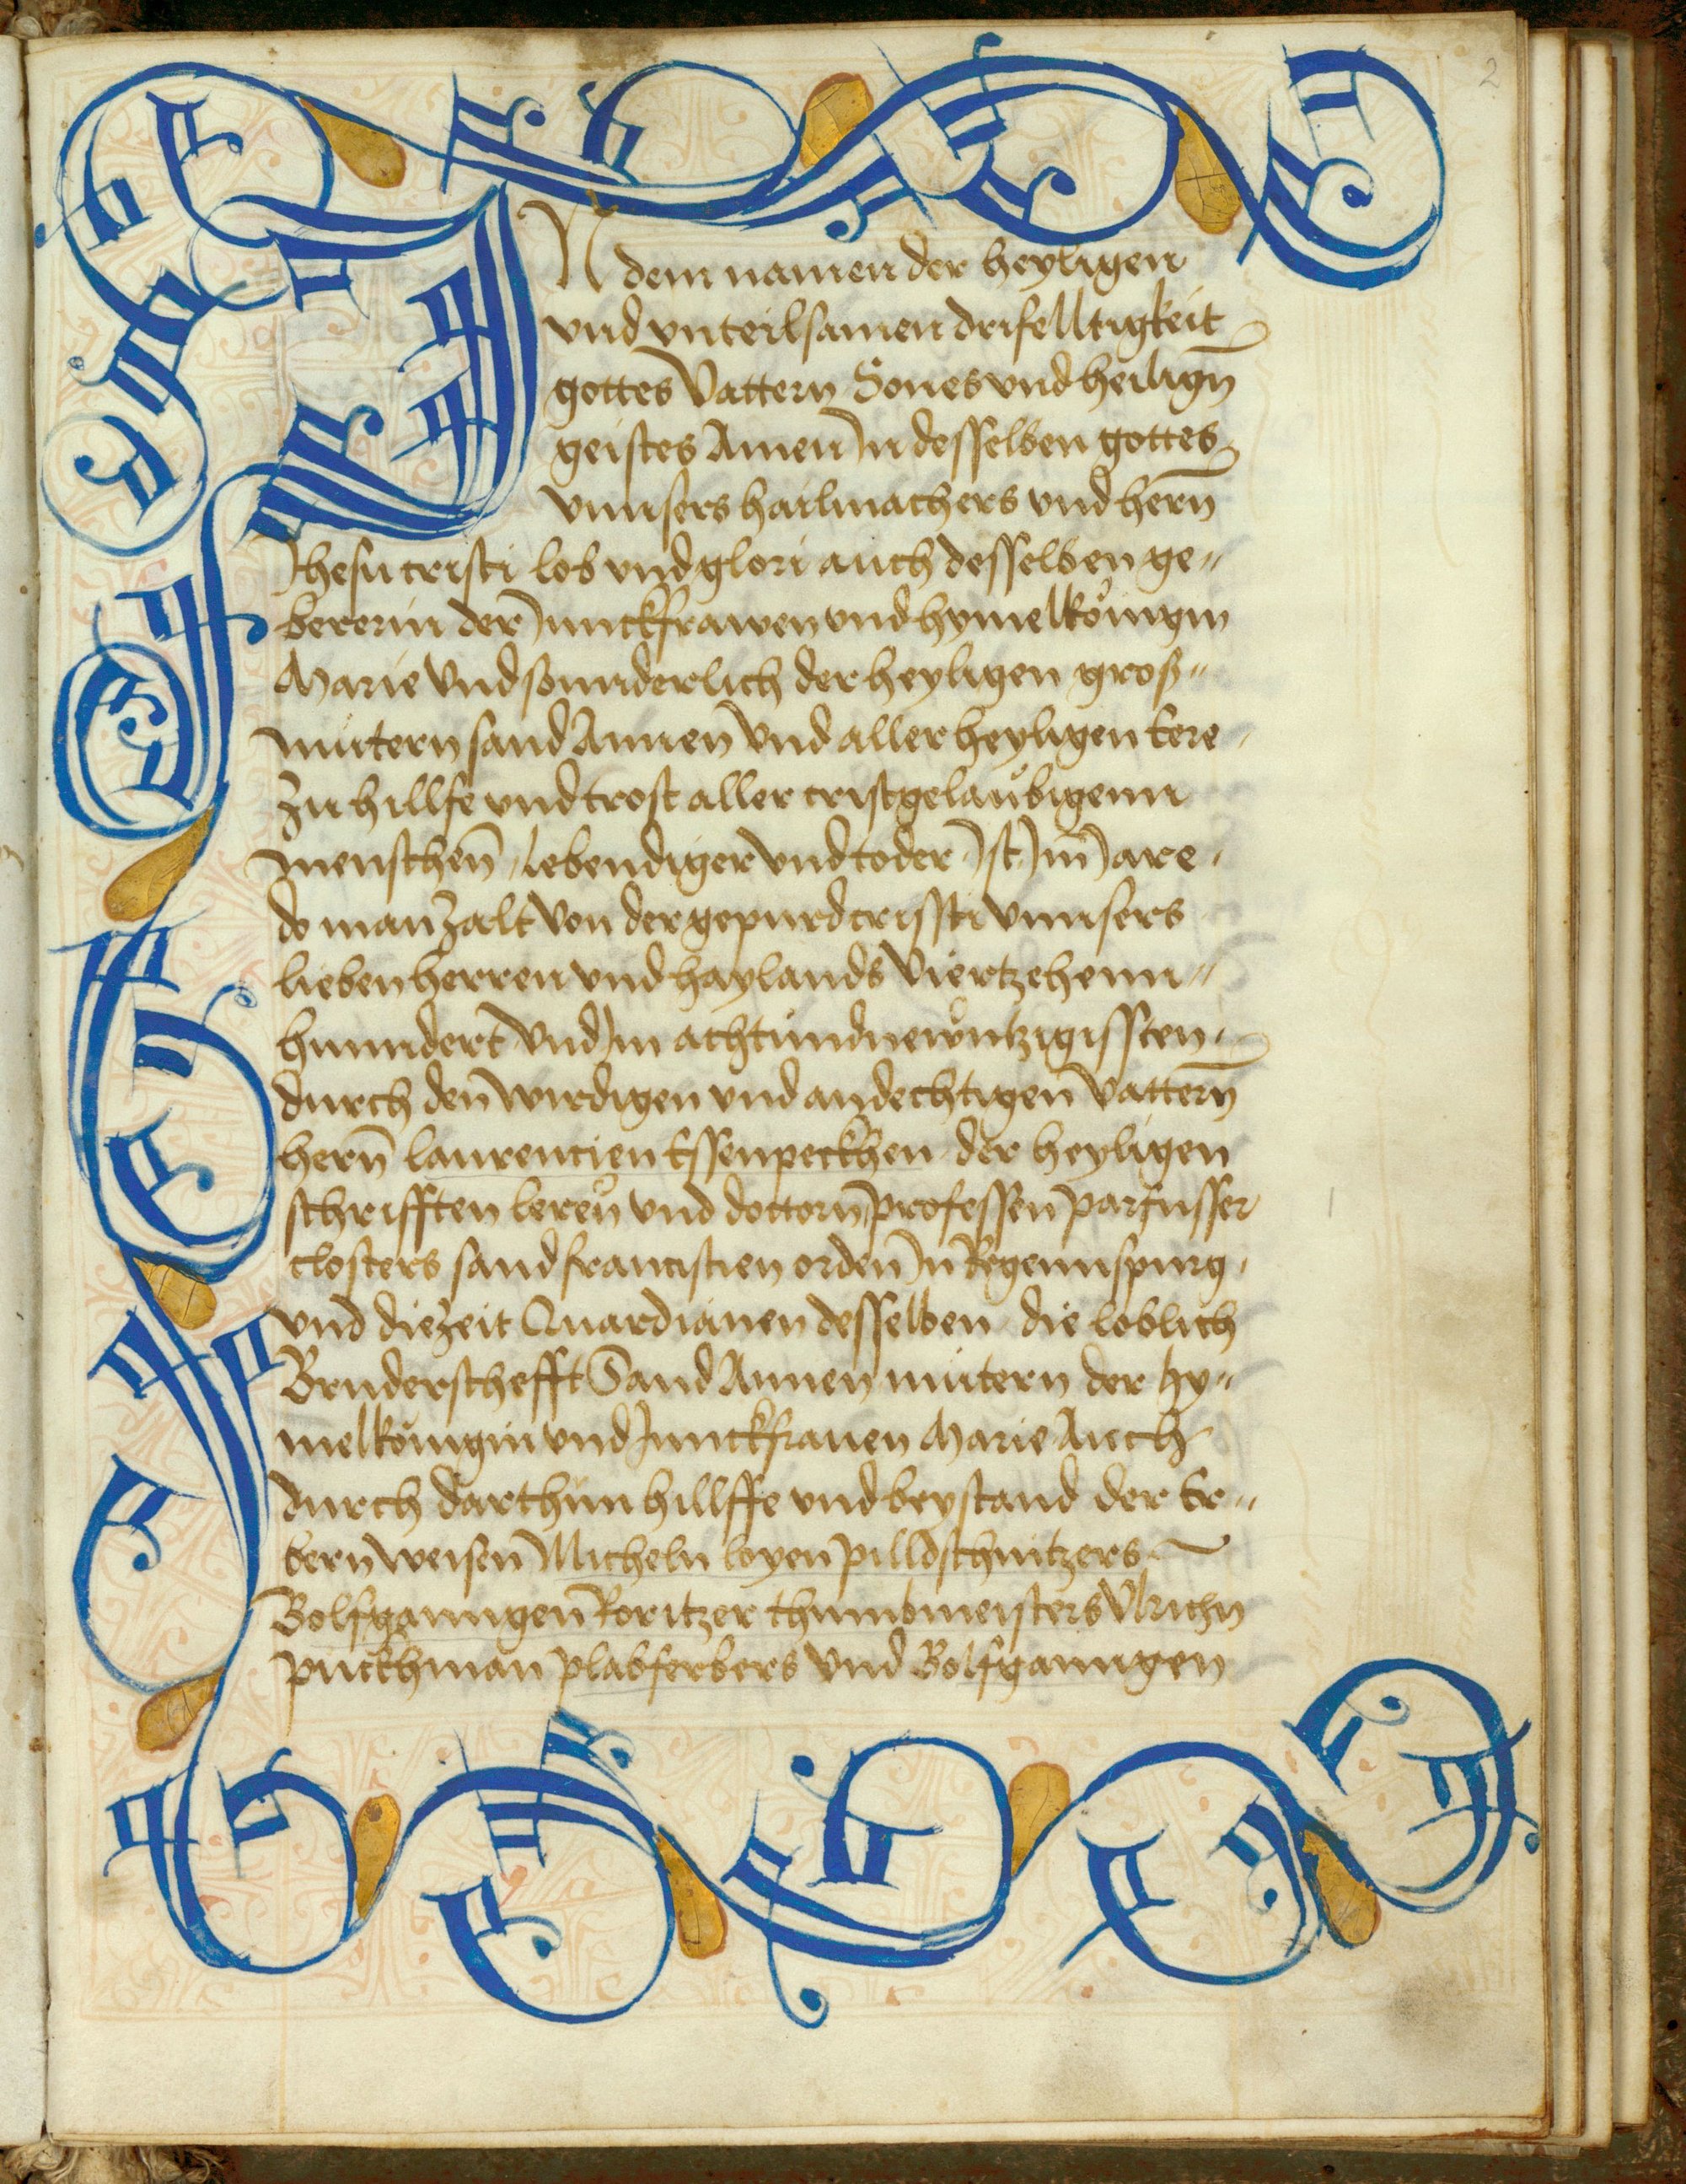 2
IN dem namen der heyligen
vnd vnteilsamen drifelltigkeit
gottes Vattern Sones vnd heilign̄
geistes Amen In desselben gottes
vnnsers hailmachers vnd herrn̄
Jhesu cristi lob vnd glori auch desselben ge„
bererin der Junckfrawen vnd hymelkönigin
Marie Vnd sounderlich der heyligen gros„
mutern sand Annen Vnd aller heyligen Ere
zu hillfe vnd trost aller cristgelaůbigenn
menschen̄ lebendiger vnd toder Ist Im̄ Jare
do man zalt Von der gepurd cristi vnnsers
lieben herren vnd haylands Viertzehenn„
hunndert Vnd Im achtundnewntzigissten
durch den̄ wirdigen vnd andechtigen Vattern̄
hern̄ laurencien Essenpeckhen der heyligen
schrifften lerern vnd doctorn̄ professen parfusser
closters sand franciscien orden In Regennspurg
vnd die zeit Quardianen desselben die loblich
Bruderschefft Sand Annen mutern der hy„
melkönigin vnd Junckfrauen Marie Auch
durch darthun hillffe vnd beystand der Er„
bern weisen̄ Micheln loyen pilldschnitzers
Wolfganngen̄ Roritzer thumbmeisters Vlrichn
puckhman plabferbers Vnd Wolfganngen